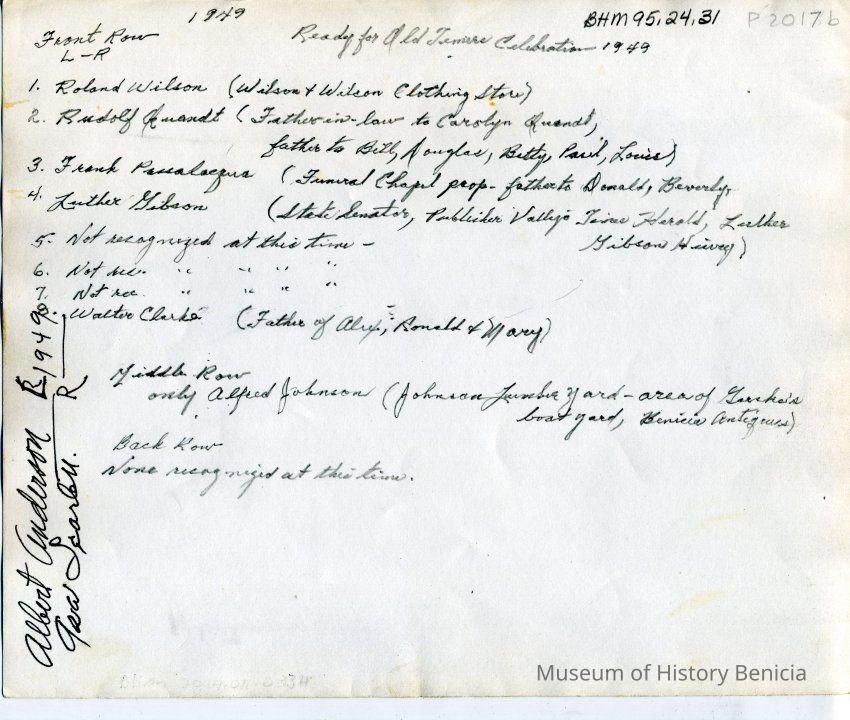 1949
BHM95,24,31 P 2017b
Ready for Old Timers Celebration 1949
Front Row
L-R
1. Roland Wilson (Wilson & Wilson Clothing Store)
2. Rudolf Quandt (Father-in-law to Carolyn Quandt,
father to Bill, Douglas, Betty, Paul, Louis)
3. Frank Passalacqua (Funeral Chapel prop- father to Donald, Beverly
4. Luther Gibson (State Senator, Publisher Vallejo Times Herald, Luther
Gibson Hiway)
5. Not recognized at this time -
6. Not rec. " " " "
7. Not rec. " " " "
8. Walter Clarke (Father of Alex, Ronald & Mary)
Middle Row
only Alfred Johnson (Johnson Lumber Yard - area of Gerske's
boat yard, Benicia Antiques)
Back Row
None recognized at this time.
Albert Anderson R 1949
R
Museum of History Benicia